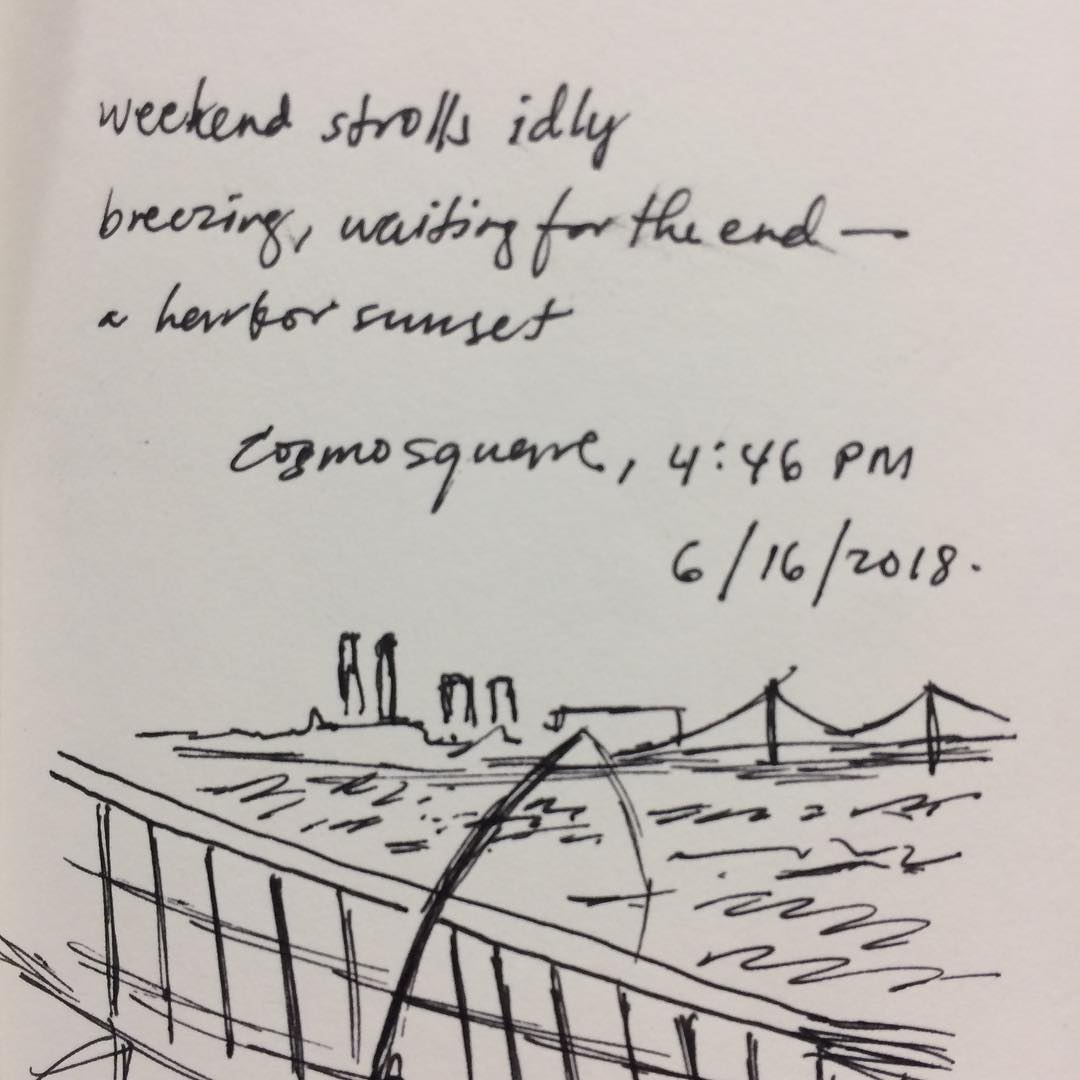 weekend strolls idly
breezing, waiting for the end —
a harbor sunset
Cosmosquare, 4:46 PM
6/16/2018.